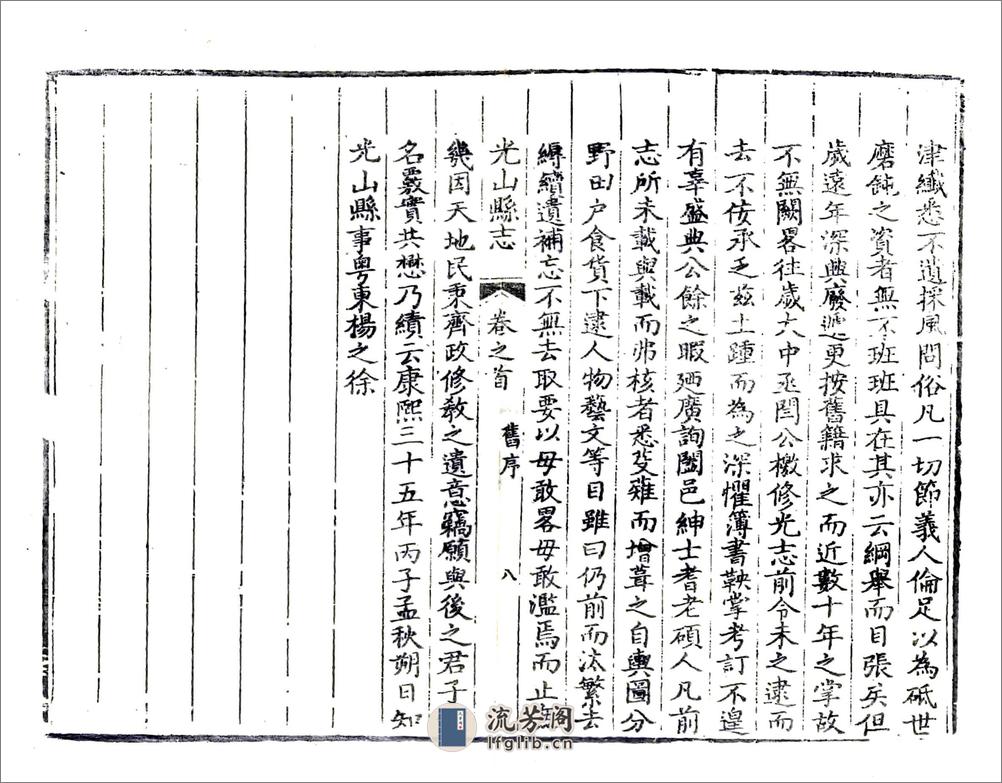 津纖悉不遺採風問俗凡一切節義人倫足以為砥世
磨鈍之資者無不班班具在其亦云綱舉而目張矣但
歲遠年深興廢遞更按舊籍求之而近數十年之掌故
不無闕畧往歲大中丞閆公檄修光志前令未之逮而
去不佞承乏茲土踵而為之深懼簿書鞅掌考訂不遑
有辜盛典公餘之暇廼廣詢闔邑紳士耆老碩人凡前
志所未載與載而弗核者悉芟雖而增葺之自輿圖分
野田户食貨下逮人物藝文等目雖曰仍前而汰繁去
縟續遺補忘不無去取要以毋敢畧毋敢濫焉而止
光山縣志
卷之首
舊序
八
幾因天地民秉齊政修教之遺意竊願與後之君子
名覈實共懋乃績云康熙三十五年丙子孟秋朔日知
光山縣事粵東楊之徐
流芳閣
lfglib.cn